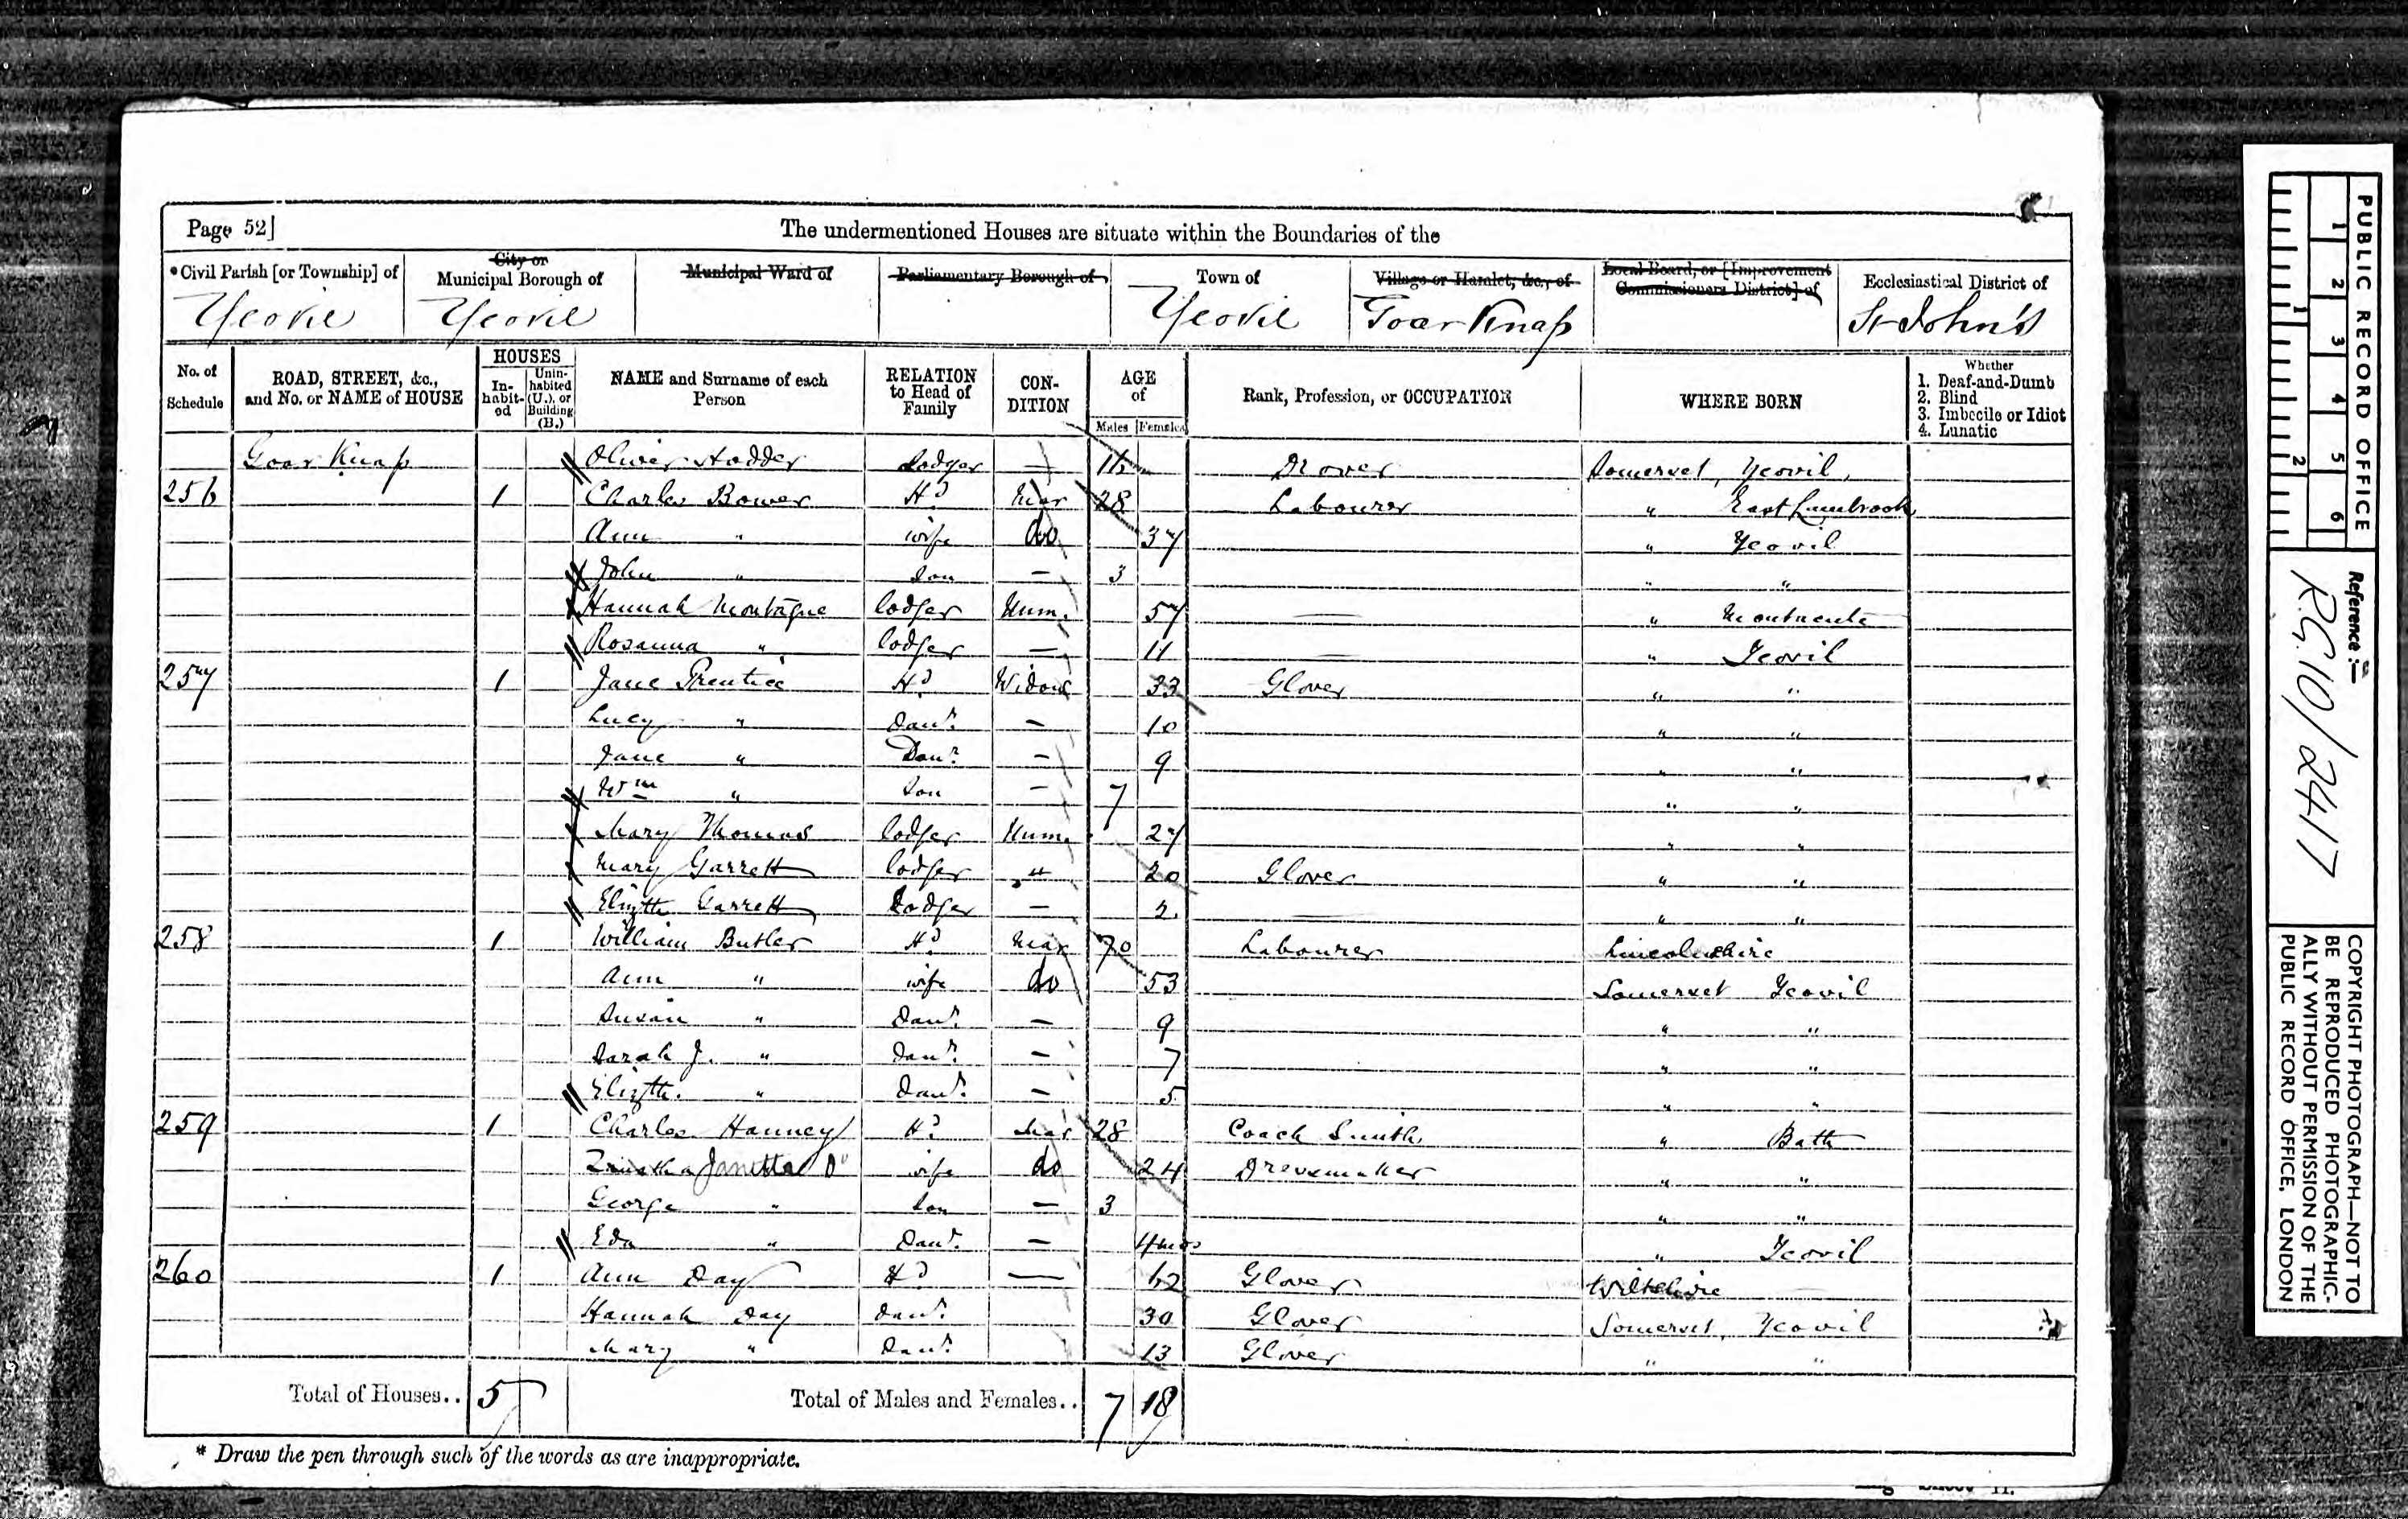 Page 52]
The undermentioned Houses are situate within the Boundaries of the
*Civil Parish [or Township] of
City or Municipal Borough of
Municipal Ward of
Parliamentary Borough of
Town of
Village or Hamlet, &c., of
Local Board, or [Improvement Commissioners District] of
Ecclesiastical District of
Yeovil Yeovil Yeovil Goar Knap St John's
No. of Schedule
ROAD, STREET, &c., and No. or NAME of HOUSE
HOUSES
In-habit-ed
Unin-habited (U.), or Building (B.)
NAME and Surname of each Person
RELATION to Head of Family
CON-DITION
AGE of
Males Females
Rank, Profession, or OCCUPATION
WHERE BORN
Whether
1. Deaf-and-Dumb
2. Blind
3. Imbecile or Idiot
4. Lunatic
Goar Knap Oliver Hodder Lodger — 16 Drover Somerset, Yeovil,
256 1 Charles Bower Hd Mar 28 Labourer " East Lambrook
Ann " wife do 37 " Yeovil
John " Son — 3 " "
Hannah Montague lodger Unm. 57 — " Montacute
Rosanna " lodger — 11 — " Yeovil
257 1 Jane Prentice Hd Widow 33 Glover " "
Lucy " Daur. — 10 " "
Jane " Daur. — 9 " "
Wm " Son — 7 " "
Mary Thomas lodger Unm. 27 " "
Mary Garrett lodger " 20 Glover " "
Elizth Garrett Lodger — 2 — " "
258 1 William Butler Hd Mar 70 Labourer Lincolnshire
Ann " wife do 53 Somerset Yeovil
Susan " Daur. — 9 " "
Sarah J. " Daur. — 7 " "
Elizth. " Daur. — 5 " "
259 1 Charles Hanney Hd Mar 28 Coach Smith " Bath
Janetta Do wife do 24 Dressmaker " "
George " Son — 3 " "
Eda " Daur. — 4mos " Yeovil
260 1 Ann Day Hd — 62 Glover Wiltshire —
Hannah Day Daur. 30 Glover Somerset, Yeovil
Mary " Daur. 13 Glover " "
Total of Houses.. 5
Total of Males and Females.. 7 18
* Draw the pen through such of the words as are inappropriate.
PUBLIC RECORD OFFICE
1 2 3 4 5 6
1 2
Reference:—
R.G. 10/2417
COPYRIGHT PHOTOGRAPH—NOT TO
BE REPRODUCED PHOTOGRAPHIC-
ALLY WITHOUT PERMISSION OF THE
PUBLIC RECORD OFFICE, LONDON